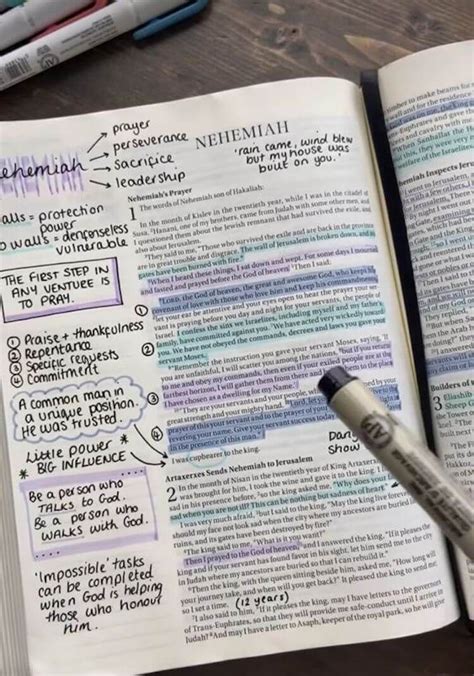 prayer
perseverance
sacrifice
leadership
ehemiah
NEHEMIAH
'rain came, wind blew
but my house was
built on you.'
alls = protection
power
o walls = denfenseless
vulnerable
THE FIRST STEP IN
ANY VENTURE IS
TO PRAY.
① Praise + thankfulness
② Repentance
③ Specific requests
④ Commitment
A common man in
a unique position.
He was trusted.
Little power
* BIG INFLUENCE *
Be a person who
TALKS to God.
Be a person who
WALKS with God.
'Impossible' tasks
can be completed
when God is helping
those who honour
him.
Nehemiah's Prayer
1 The words of Nehemiah son of Hakaliah:
In the month of Kislev in the twentieth year, while I was in the citadel of
Susa, ²Hanani, one of my brothers, came from Judah with some other men, and
I questioned them about the Jewish remnant that had survived the exile, and
also about Jerusalem.
³They said to me, "Those who survived the exile and are back in the province
are in great trouble and disgrace. The wall of Jerusalem is broken down, and its
gates have been burned with fire."
⁴When I heard these things, I sat down and wept. For some days I mourned
and fasted and prayed before the God of heaven. ⁵Then I said:
"Lord, the God of heaven, the great and awesome God, who keeps his
covenant of love with those who love him and keep his commandments,
⁶let your ear be attentive and your eyes open to hear the prayer your ser-
vant is praying before you day and night for your servants, the people of
Israel. I confess the sins we Israelites, including myself and my father's
family, have committed against you. ⁷We have acted very wickedly toward
you. We have not obeyed the commands, decrees and laws you gave your
servant Moses.
①
②
③
④
⁸"Remember the instruction you gave your servant Moses, saying, 'If
you are unfaithful, I will scatter you among the nations, ⁹but if you return
to me and obey my commands, then even if your exiled people are at the
farthest horizon, I will gather them from there and bring them to the place
I have chosen as a dwelling for my Name.'
¹⁰"They are your servants and your people, whom you redeemed by your
great strength and your mighty hand. ¹¹Lord, let your
prayer of this your servant and to the prayer of your
revering your name. Give your servant success today
in the presence of this man."
I was cupbearer to the king.
Artaxerxes Sends Nehemiah to Jerusalem
2 In the month of Nisan in the twentieth year of King Artaxerxes
was brought for him, I took the wine and gave it to the king. I
sad in his presence before, ²so the king asked me, "Why does your
sad when you are not ill? This can be nothing but sadness of heart."
I was very much afraid, ³but I said to the king, "May the king live forever
should my face not look sad when the city where my ancestors are buried
ruins, and its gates have been destroyed by fire?"
⁴The king said to me, "What is it you want?"
Then I prayed to the God of heaven, ⁵and I answered the king, "If it pleases the
king and if your servant has found favor in his sight, let him send me to the city
in Judah where my ancestors are buried so that I can rebuild it."
⁶Then the king, with the queen sitting beside him, asked me, "How long will
your journey take, and when will you get back?" It pleased the king to send me,
so I set a time.
(12 years)
⁷I also said to him, "If it pleases the king, may I have letters to the governors
of Trans-Euphrates, so that they will provide me safe-conduct until I arrive in
Judah? ⁸And may I have a letter to Asaph, keeper of the royal park, so he will give